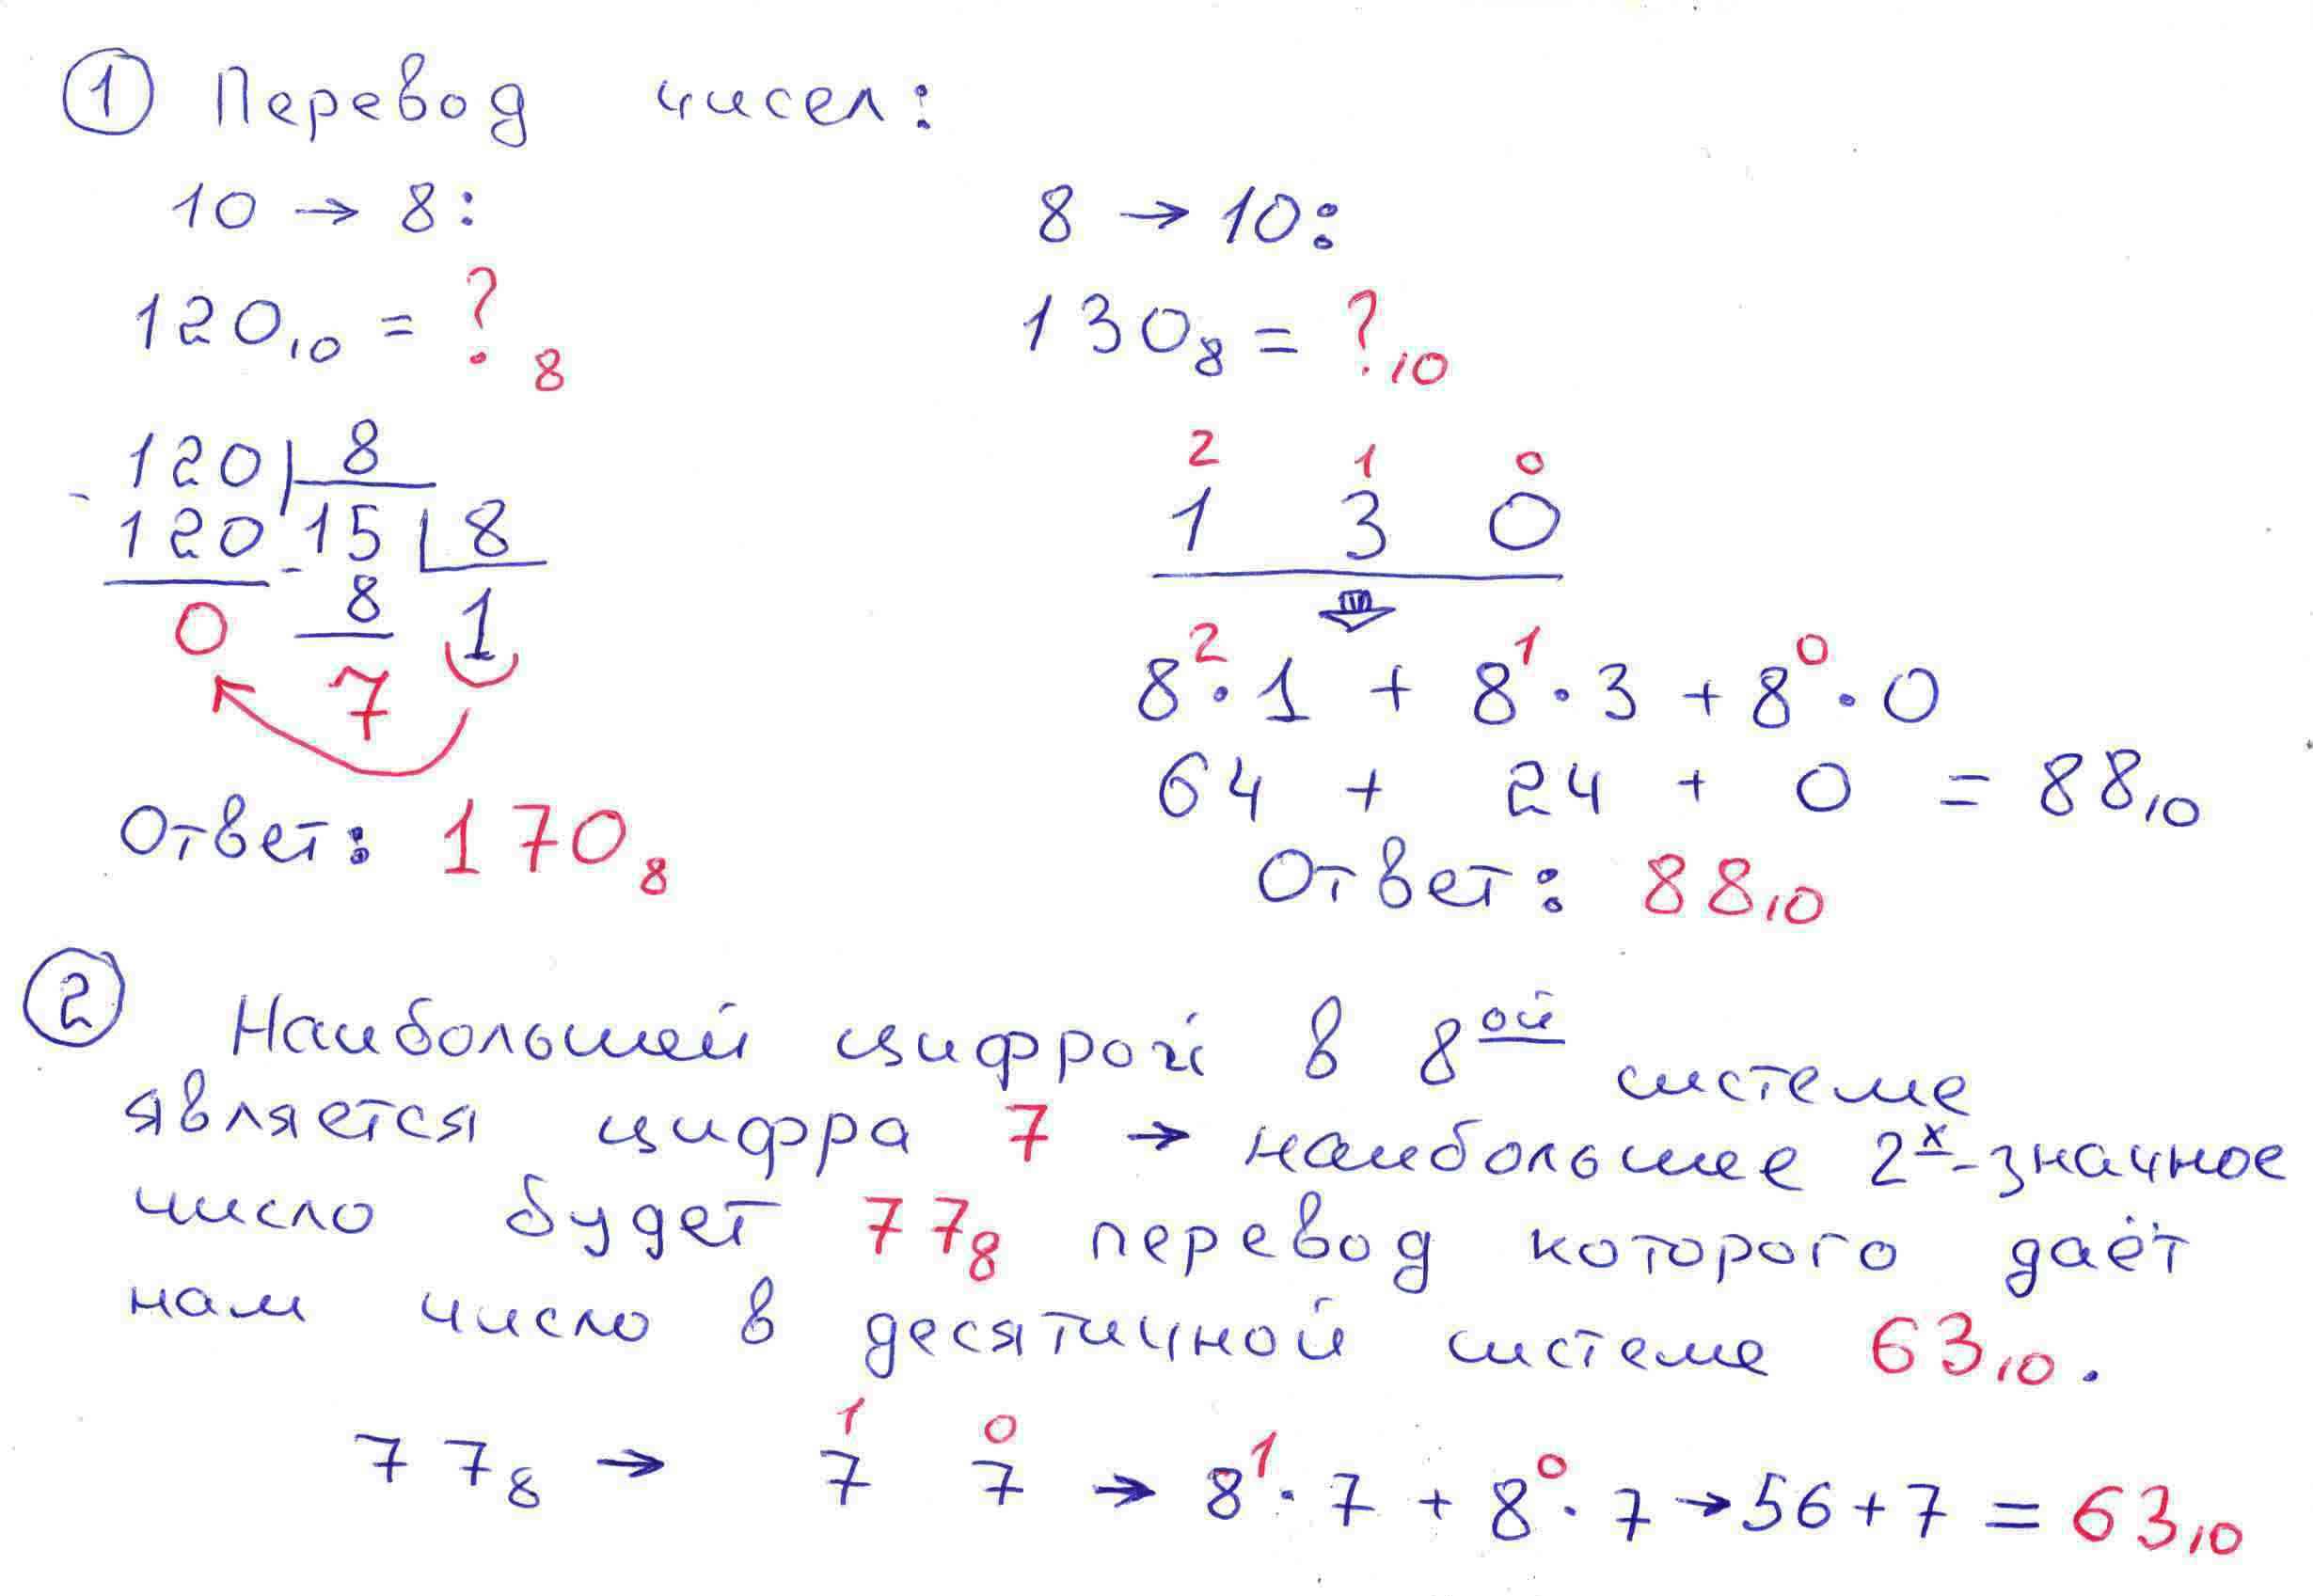 ① Перевод чисел:
10 → 8:
120₁₀ = ?₈
120 | 8
- 120 15 | 8
0 - 8 1
7
Ответ: 170₈
8 → 10:
130₈ = ?₁₀
2 1 0
1 3 0
8²·1 + 8¹·3 + 8⁰·0
64 + 24 + 0 = 88₁₀
Ответ: 88₁₀
② Наибольшей цифрой в 8ᵒᵘ̆ системе
является цифра 7 → наибольшее 2ˣ-значное
число будет 77₈ перевод которого даёт
нам число в десятичной системе 63₁₀.
1 0
77₈ → 7 7 → 8¹·7 + 8⁰·7 → 56+7 = 63₁₀